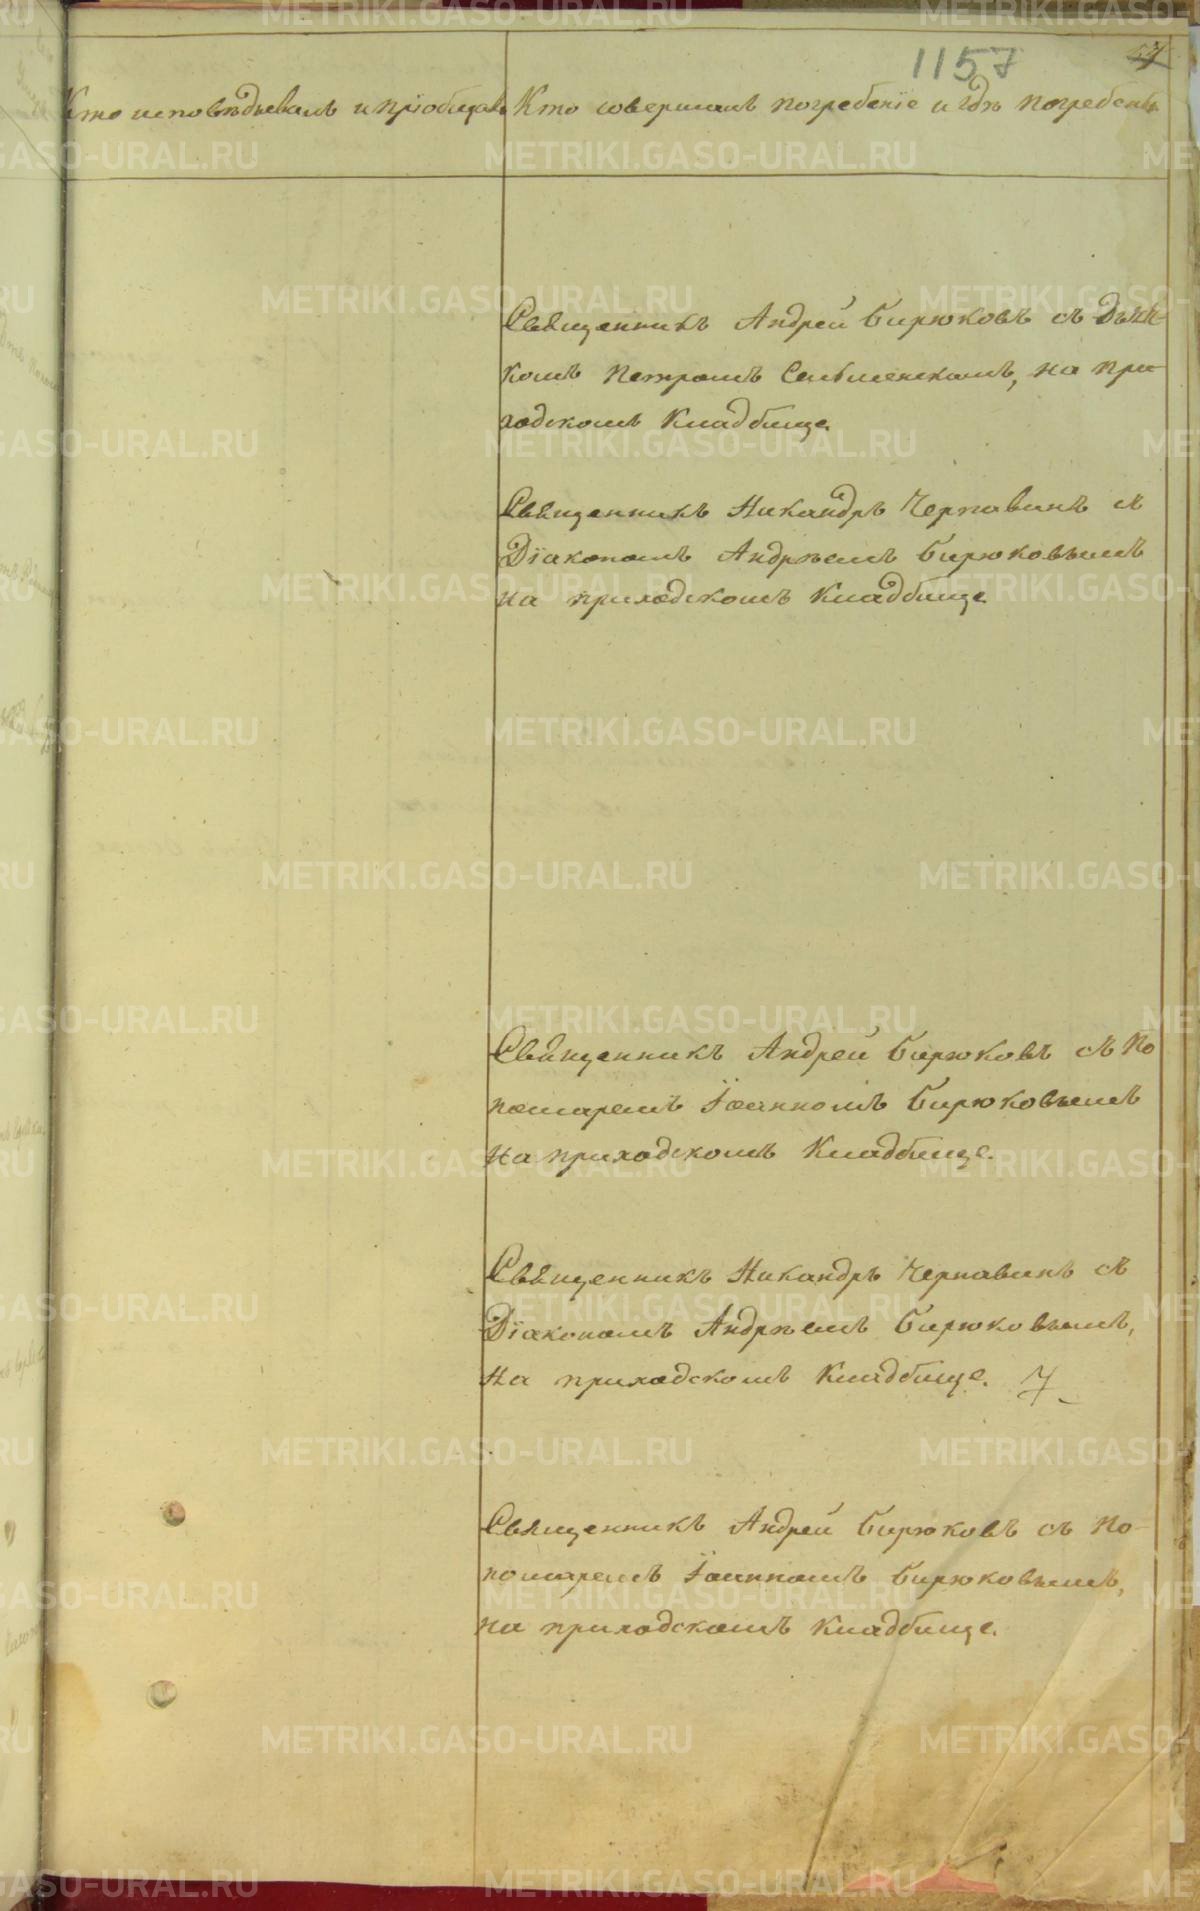 1157
Кто исповѣдывалъ и пріобщалъ
Кто совершалъ погребеніе и гдѣ погребены
Священникъ Андрей Бирюковъ съ Дьяч-
комъ Петромъ на при-
ходскомъ Кладбище.
Священникъ Никандръ Чернавинъ съ
Діакономъ Андрѣемъ Бирюковымъ
на приходскомъ Кладбище
Священникъ Андрей Бирюковъ съ По
номаремъ Іоанномъ Бирюковымъ
на приходскомъ Кладбище.
Священникъ Никандръ Чернавинъ съ
Діакономъ Андрѣемъ Бирюковымъ,
на приходскомъ Кладбище.
Священникъ Андрей Бирюковъ съ По-
номаремъ Іоанномъ Бирюковымъ,
на приходскомъ Кладбище.
METRIKI.GASO-URAL.RU